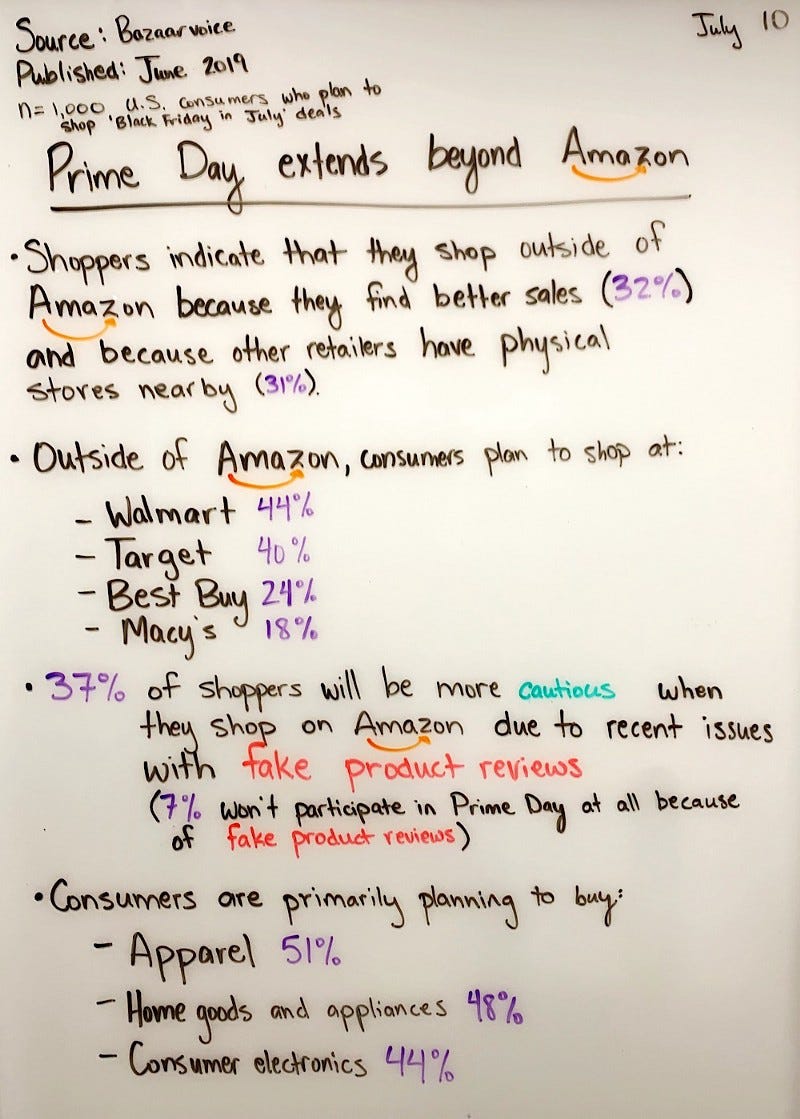 Source: Bazaarvoice
July 10
Published: June 2019
n= 1,000 U.S. consumers who plan to
shop 'Black Friday in July' deals
Prime Day extends beyond Amazon
• Shoppers indicate that they shop outside of
Amazon because they find better sales (32%)
and because other retailers have physical
stores nearby (31%).
• Outside of Amazon, consumers plan to shop at:
- Walmart 44%
- Target 40%
- Best Buy 24%
- Macy's 18%
• 37% of shoppers will be more cautious when
they shop on Amazon due to recent issues
with fake product reviews
(7% won't participate in Prime Day at all because
of fake product reviews)
• Consumers are primarily planning to buy:
- Apparel 51%
- Home goods and appliances 48%
- Consumer electronics 44%